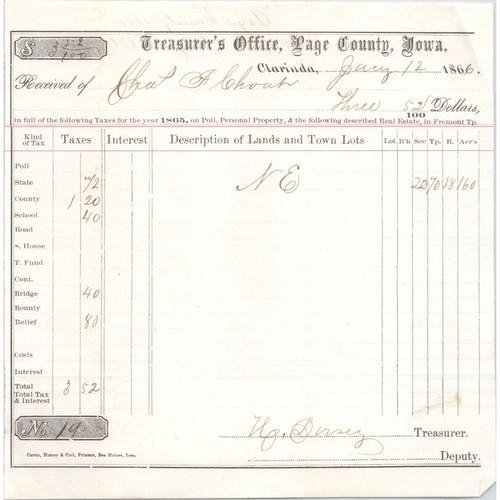 $ 3 52/100 Treasurer's Office, Page County, Iowa.
Clarinda, Jany 12 1866.
Received of Chas F Choat
Three 52/100 Dollars,
in full of the following Taxes for the year 1865, on Poll, Personal Property, & the following described Real Estate, in Fremont Tp.
Kind of Tax Taxes Interest Description of Lands and Town Lots Lot B'k Sec Tp. R. Acr's
Poll
State 72 N E 22 70 38 160
County 1 20
School 40
Road
S. House
T. Fund
Cont.
Bridge 40
Bounty
Relief 80
Costs
Interest
Total
Total Tax & Interest 3 52
No. 19
Dorsey Treasurer.
Carter, Hussey & Curl, Printers, Des Moines, Iowa.
Deputy.